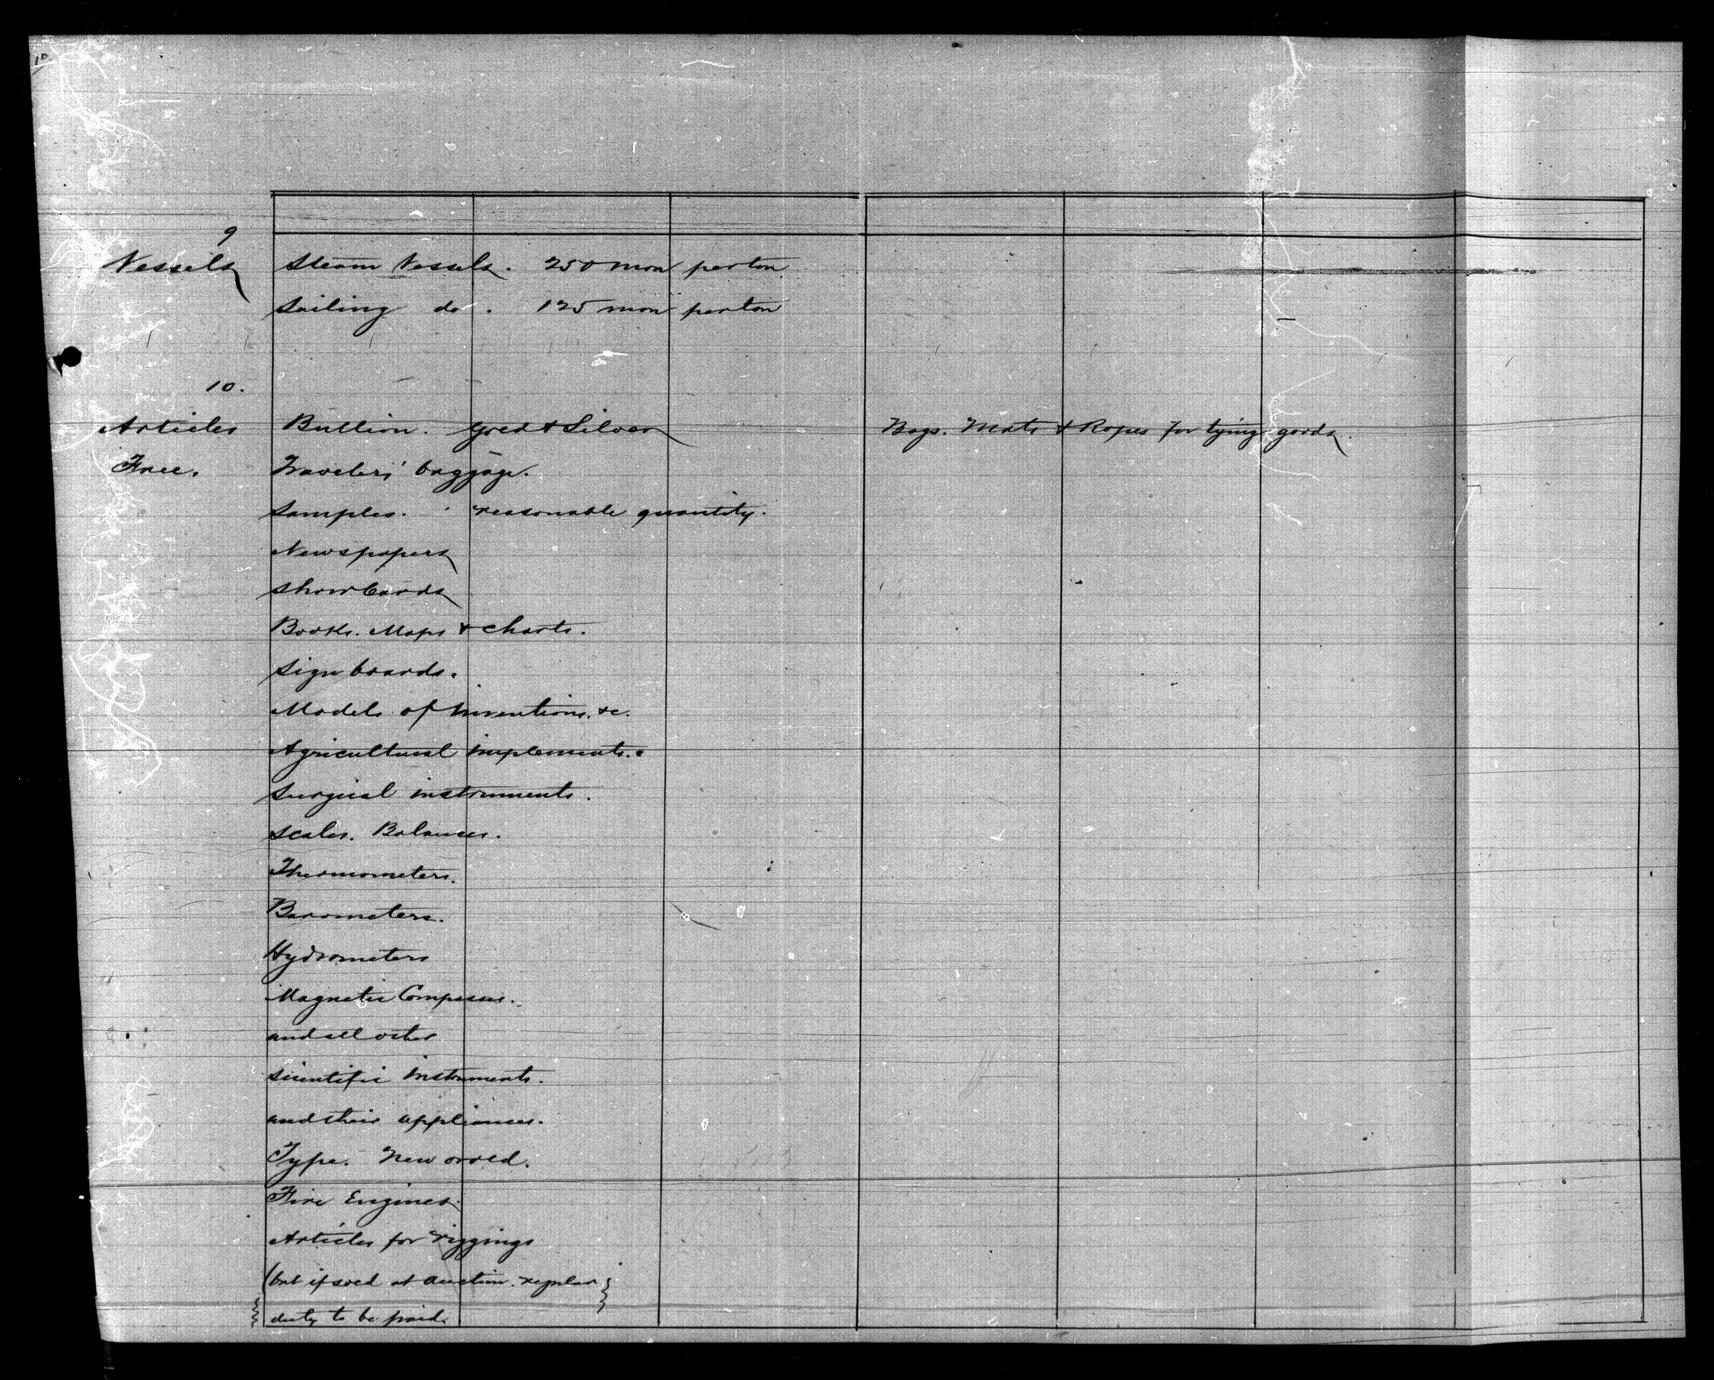 10
9
Vessels Steam Vessels. 250 mon per ton
Sailing do. 125 mon per ton
10.
Articles Bullion. Gold & Silver Bags. Mats & Ropes for tying goods.
Free. Travelers' baggage.
Samples. reasonable quantity.
Newspapers
Show Cards
Books. Maps & Charts.
Sign boards.
Models of inventions. &c.
Agricultural implements.
Surgical instruments.
Scales. Balances.
Thermometers.
Barometers.
Hydrometers
Magnetic Compasses.
and all other
Scientific instruments.
and their appliances.
Type. New or old.
Fire Engines.
Articles for riggings
(but if sold at auction. regular
duty to be paid.